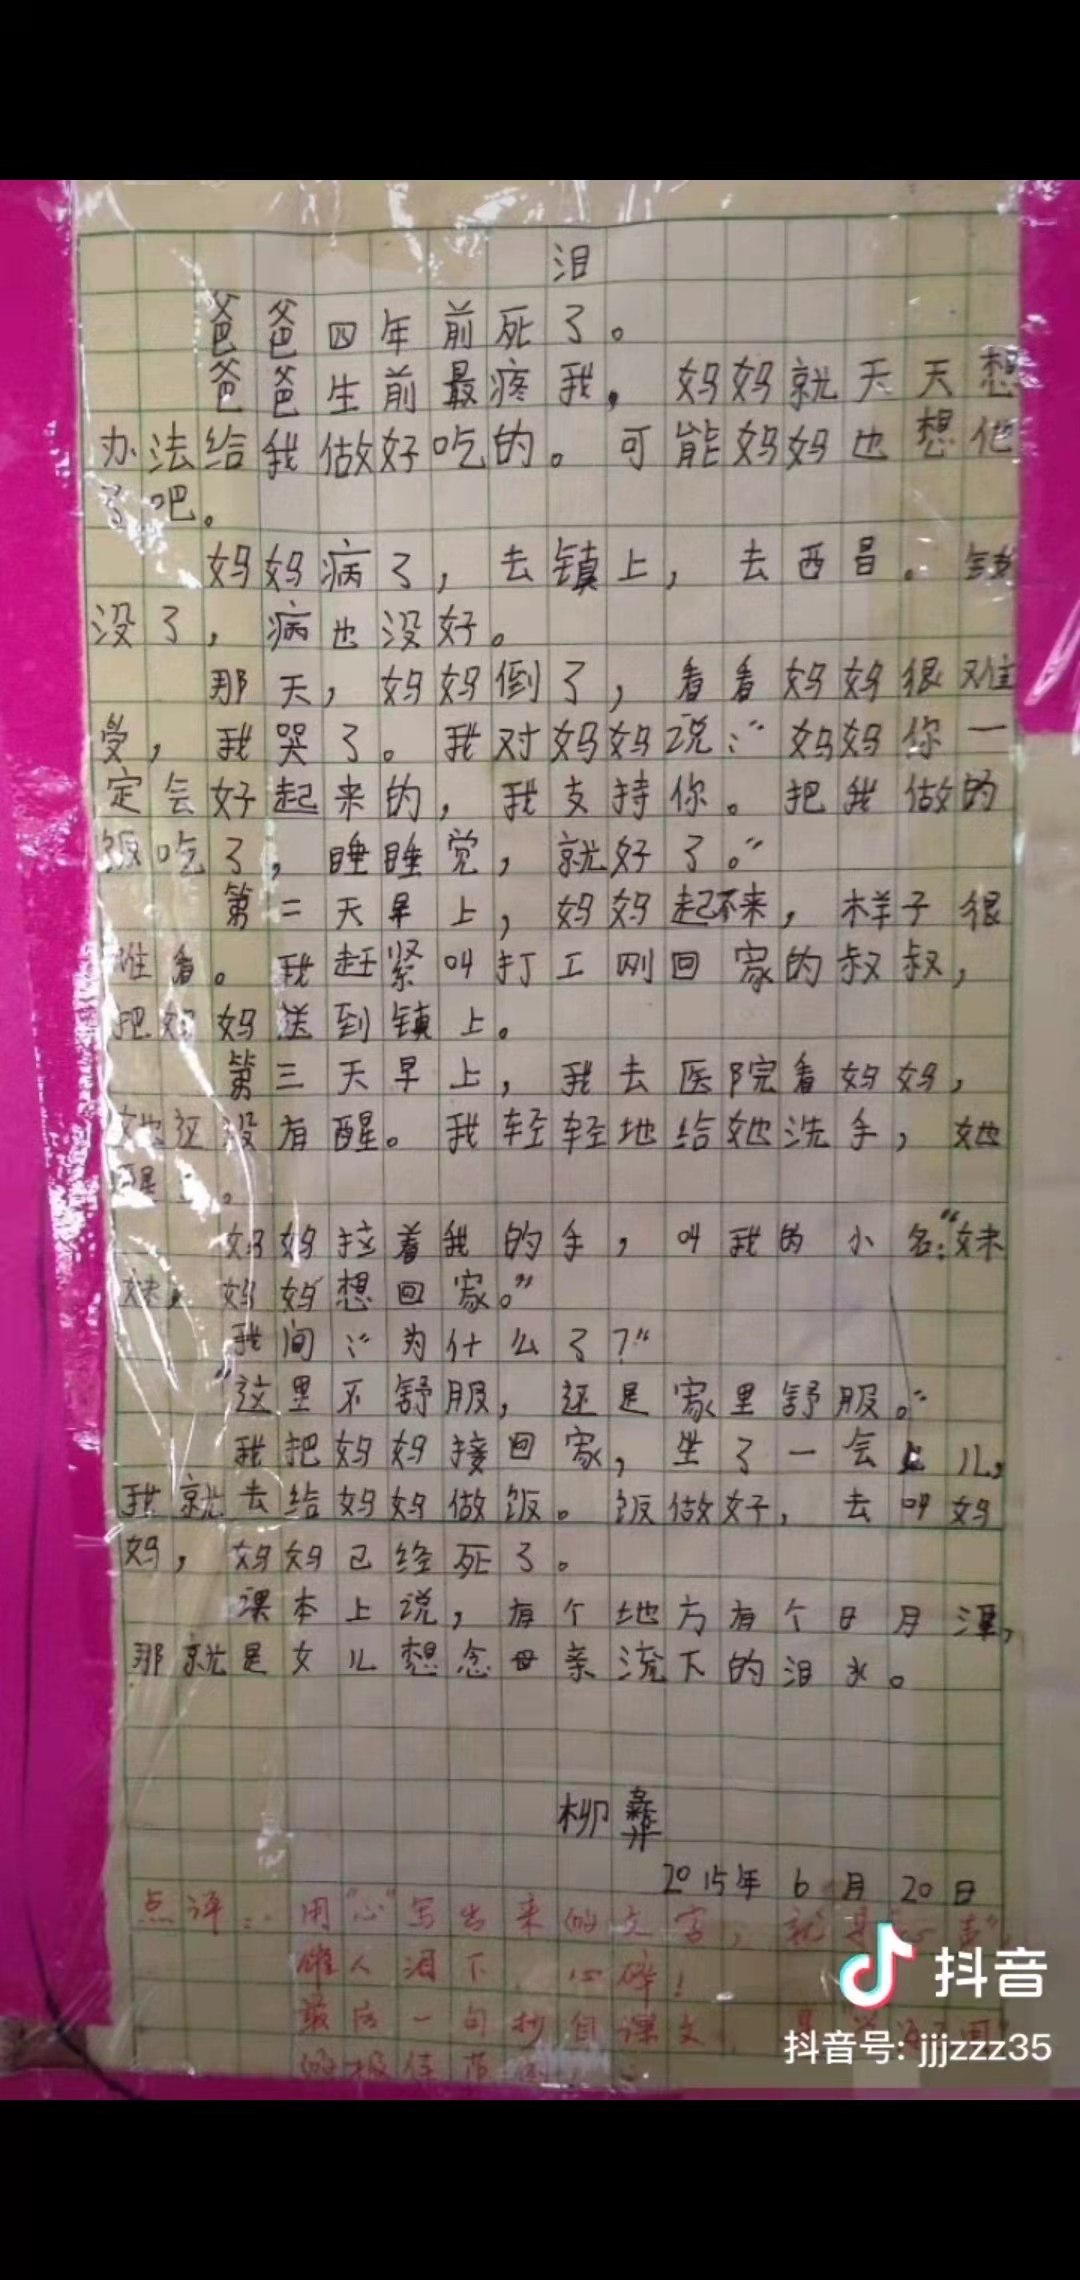 泪
爸爸四年前死了。
爸爸生前最疼我，妈妈就天天想
办法给我做好吃的。可能妈妈也想他
了吧。
妈妈病了，去镇上，去西昌。钱
没了，病也没好。
那天，妈妈倒了，看看妈妈很难
受，我哭了。我对妈妈说：“妈妈你一
定会好起来的，我支持你。把我做的
饭吃了，睡睡觉，就好了。”
第二天早上，妈妈起不来，样子很
难看。我赶紧叫打工刚回家的叔叔，
把妈妈送到镇上。
第三天早上，我去医院看妈妈，
她还没有醒。我轻轻地给她洗手，她
醒了。
妈妈拉着我的手，叫我的小名：“妹
妹，妈妈想回家。”
我问：“为什么了？”
“这里不舒服，还是家里舒服。”
我把妈妈接回家，坐了一会儿，
我就去给妈妈做饭。饭做好，去叫妈
妈，妈妈已经死了。
课本上说，有个地方有个日月潭，
那就是女儿想念母亲流下的泪水。
柳彝
2015年6月20日
点评：用“心”写出来的文字，就是“心声”
催人泪下，心碎！
最后一句抄自课文，
的极佳范例
抖音
抖音号: jjjzzz35